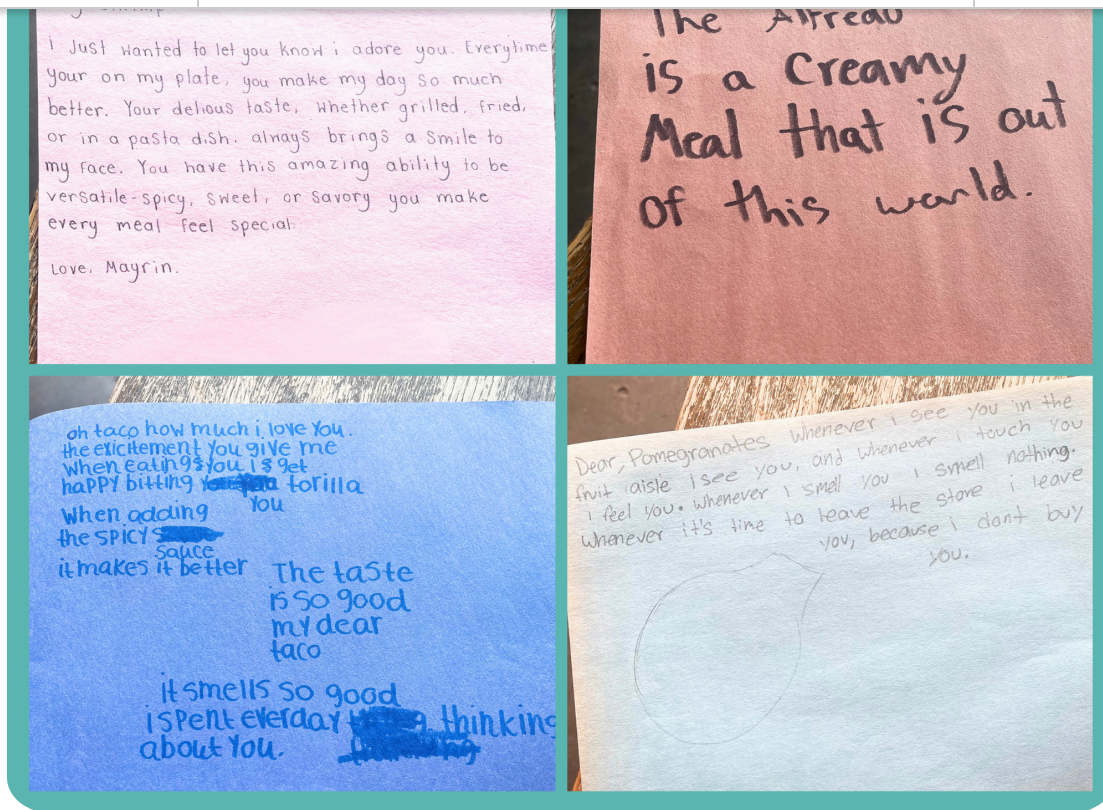 i Just wanted to let you know i adore you. Everytime
your on my plate, you make my day so much
better. Your delious taste, whether grilled, fried,
or in a pasta dish. always brings a smile to
my face. You have this amazing ability to be
versatile-spicy, sweet, or savory you make
every meal feel special.
Love, Mayrin.
The Alfredo
is a Creamy
Meal that is out
of this world.
oh taco how much i love You.
the exicitement You give me
when eating you I get
haPPY bitting torilla
You
When adding
the SPICY
sauce
it makes it better
The taste
is so good
my dear
taco
it smells so good
i spent everday thinking
about You.
Dear, Pomegranates Whenever i see you in the
fruit aisle I see you, and whenever i touch you
i feel you. Whenever I smell you I smell nothing.
Whenever it's time to leave the store i leave
you, because i dont buy
you.